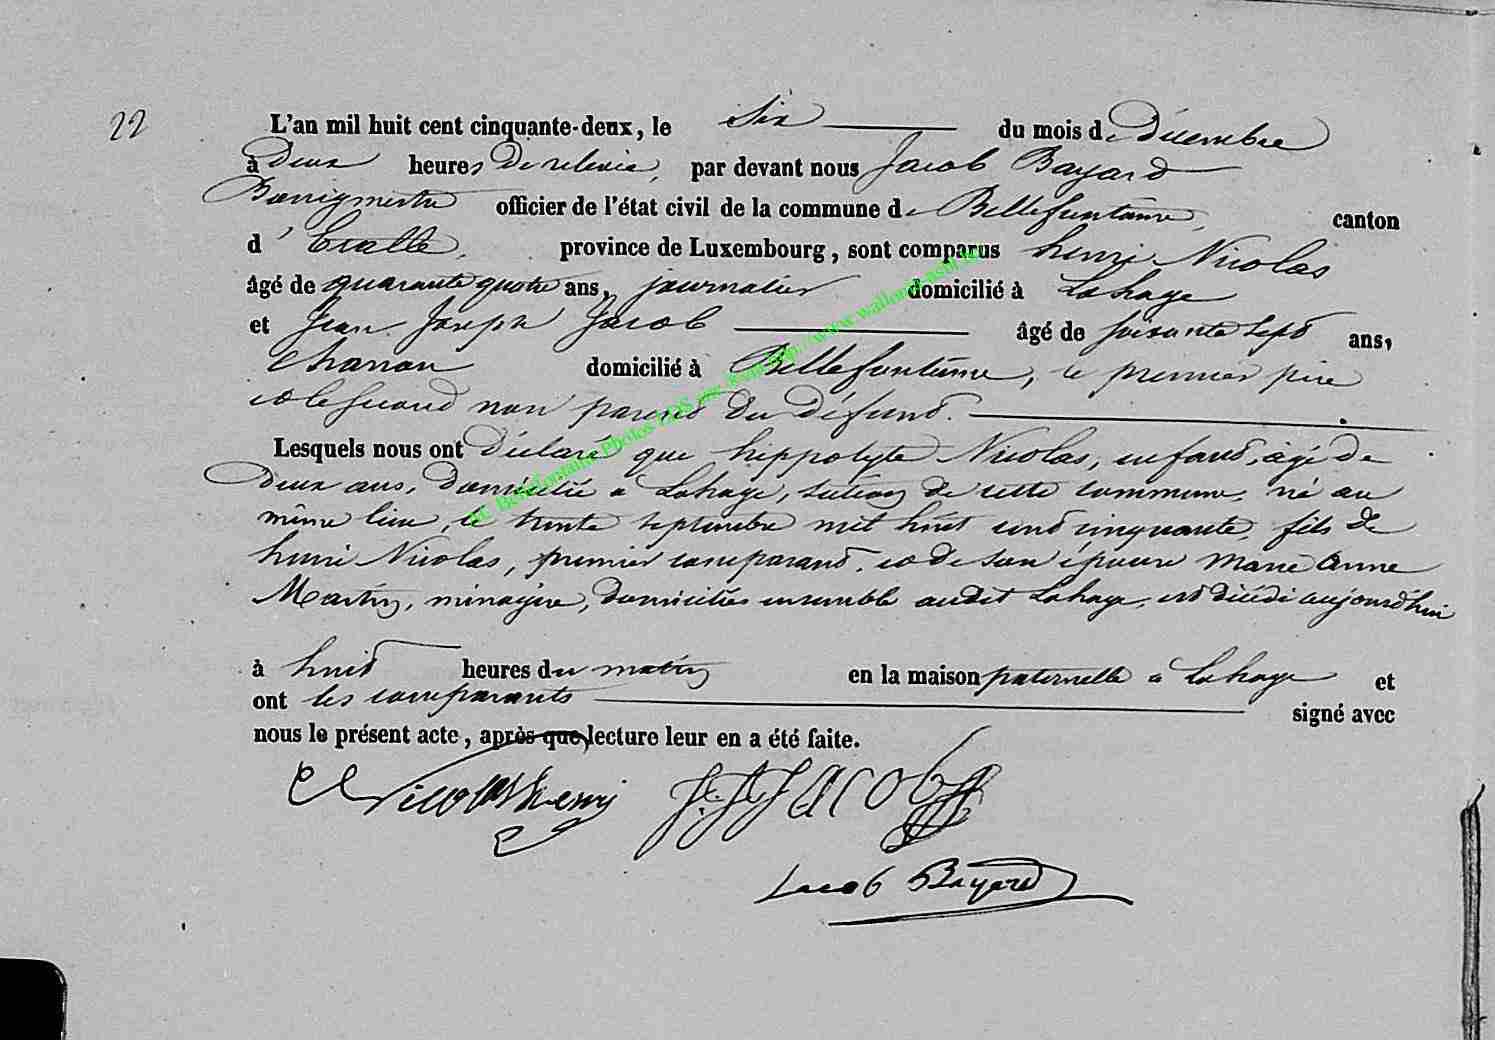 22
L'an mil huit cent cinquante-deux, le Six du mois de Décembre
à Deux heures De relevée, par devant nous Jacob Bayard
Bourgmestre officier de l'état civil de la commune de Bellefontaine, canton
d'Etalle, province de Luxembourg, sont comparus henri Nicolas
âgé de quarante quatre ans, journalier domicilié à Lahage
et Jean Joseph Jacob âgé de soixante sept ans,
domicilié à Bellefontaine, le premier père
et le second non parent Du Défunt.
Lesquels nous ont Déclaré que hippolyte Nicolas, enfant, âgé De
Deux ans, Domicilié à Lahage, section de cette commune, né au
même lieu, le trente septembre mil huit cent cinquante, fils De
henri Nicolas, premier comparant, et De son épouse Marie Anne
Martin, ménagère, Domiciliés ensemble audit Lahage, est Décédé aujourd'hui
à huit heures du matin en la maison paternelle à Lahage et
ont les comparants signé avec
nous le présent acte, après que lecture leur en a été faite.
Nicolas henri J. J. JACOB
Jacob Bayard
Bellefontaine Photos LDS par http://www.wallonia-asbl.be